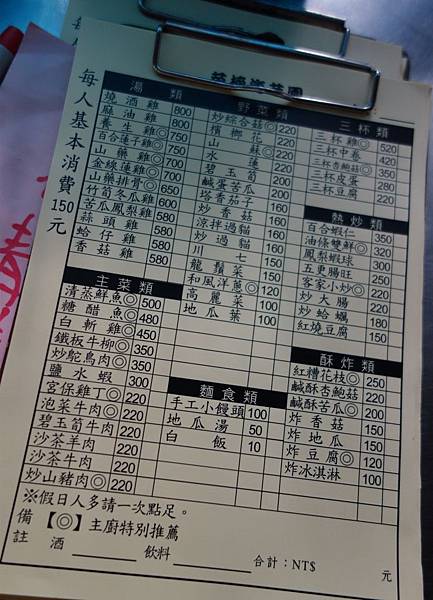 每人基本消費150元
湯類
燒酒雞 800
麻油雞 800
養生雞◎ 750
百合蓮子雞◎ 750
山藥雞◎ 700
金線蓮雞◎ 700
山藥排骨◎ 550
竹筍冬瓜雞 600
苦瓜鳳梨雞 580
蒜頭雞 580
蛤仔雞 580
香菇雞 580
主菜類
清蒸鮮魚◎ 500
糖醋魚◎ 480
白斬雞◎ 450
鐵板牛柳◎ 350
炒鴕鳥肉◎ 350
鹽水蝦 300
宮保雞丁◎ 220
泡菜牛肉◎ 220
碧玉筍牛肉 220
沙茶羊肉 220
沙茶牛肉 220
炒山豬肉◎ 220
野菜類
炒綜合菇◎ 220
檳榔 220
山蘇◎ 220
水蓮 220
碧玉筍 200
鹹蛋苦瓜 200
塔香茄子 160
炒香菇 160
涼拌過貓 160
炒過貓 160
川七 150
龍鬚菜 150
和風洋蔥◎ 120
高麗菜 100
地瓜葉 100
麵食類
手工小饅頭 100
地瓜湯 50
白飯 10
三杯類
三杯雞◎ 520
三杯中卷 420
三杯杏鮑菇◎ 350
三杯皮蛋 280
三杯豆腐 220
熱炒類
百合蝦仁 350
油條雙鮮◎ 320
鳳梨蝦球 300
五更腸旺 250
客家小炒◎ 220
炒大腸 220
炒蛤蠣 180
紅燒豆腐 150
酥炸類
紅糟花枝◎ 250
鹹酥杏鮑菇 220
鹹酥苦瓜◎ 200
炸香菇 150
炸地瓜 150
炸豆腐◎ 120
炸冰淇淋 100
※假日人多請一次點足。
備註 【◎】主廚特別推薦
酒 飲料 合計：NT$ 元